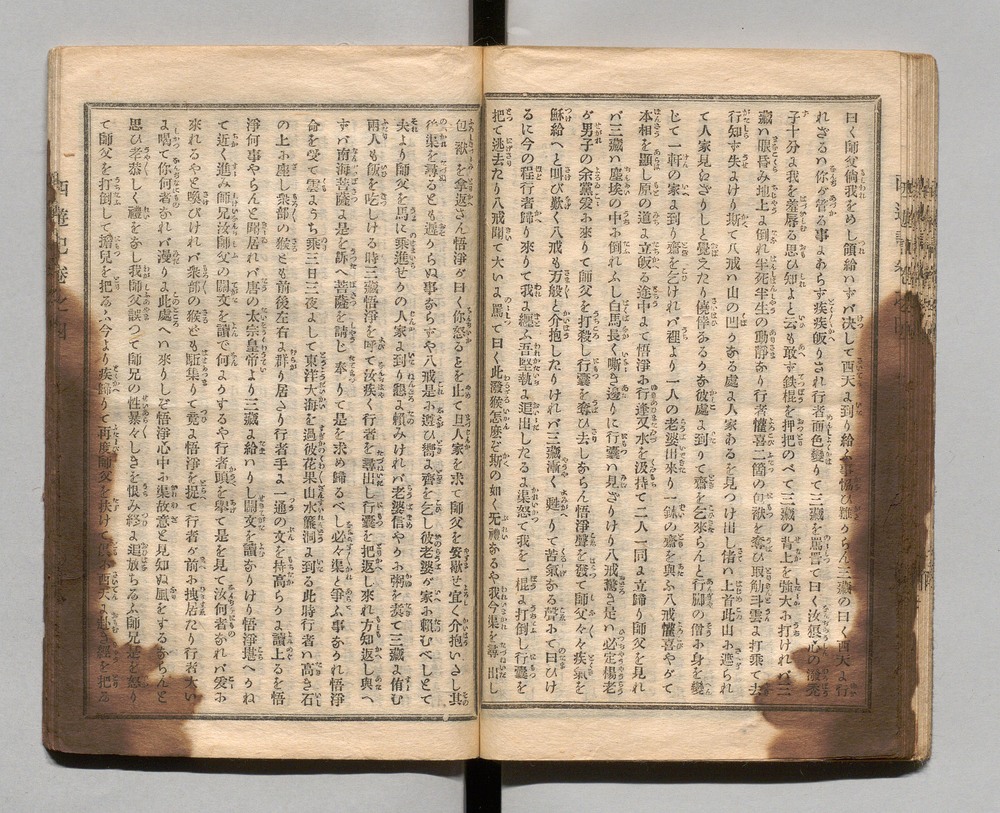 曰く師父倘我をめし領給ハずバ決して西天よ到り給ふ事 難からん三藏の曰く西天よ行
れざるハ你が管る事よあらず疾疾飯りされ行者面色變りて三藏を罵詈て曰く汝狠心の潑禿
子十分よ我を羞辱る思ひ知よと云も敢ず鉄棍を押把のべて三藏の背上を強大よ打けれバ三
藏ハ眼昏み地上よ倒れ半死半生の動靜なり行者懽喜二箇の包袱を奪ひ取觔斗雲よ打乗て去
行知ず失よけり斯て八戒ハ山の凹りなる處よ人家あるを見つけ出し偖ハ上首此山よ遮られ
て人家見ねざりしと覺えたり僥倖なるかな彼處よ到りて齋を乞來らんと行脚の僧よ身を變
じて一軒の家よ到り齋を乞けれバ裡より一人の老婆出來り一鉢の齋を與ふ八戒懽喜やがて
本相を顯し原の道よ立飯る途中よて悟淨よ行逢又水を汲持て二人一同よ立歸り師父を見れ
バ三藏ハ塵埃の中よ倒れふし白馬長く嘶き邊りよ行囊ハ見ざりけり八戒驚き是ハ必定楊老
が男子の余黨爰よ來りて師父を打殺し行囊を奪ひ去しならん悟淨聲を發て師父々々疾氣を
穌給へと叫び歎く八戒も万般と介抱したりけれバ三藏漸く甦がへりて苦氣なる聲よて曰け
るに今の程行者歸り來りて我よ纏ふ吾堅執よ追出したるよ渠怒て我を一棍よ打倒し行囊を
把て逃去たり八戒聞て大いよ罵て曰く此潑猴怎麽ぞ斯の如く无禮なるや我今渠を尋出し
包袱を拿返さん悟淨が曰く你怒るとを止て且人家を求て師父を安歇せ宜く介抱いさし其
後渠を尋るとも遲からぬ事ならずや八戒是よ遊ひ嚮よ齊を乞し彼老婆が家よ賴むべしとて
夫より師父を馬に乘進せりの人家よ到り懇よ賴みけれバ老婆信やかよ粥を煑て三藏よ侑む
兩人も飯を吃しける時三藏悟淨を呼て汝疾く行者を尋出し行囊を把返し來れ方知返し與へ
ずバ南海菩薩よ是を訴へ菩薩を請じ奉りて是を求め歸るべし必々渠と爭ふ事なかれ悟淨
命を受て雲ようち乘三日三夜よして東洋大海を過彼花果山水簾洞よ到る此時行者ハ高き石
の上よ座し衆部の猴とも前後左右よ群り居たり行者手よ一通の文を持高らかよ讀上るを悟
淨何事やらんと聞居れバ唐の太宗皇帝より三藏よ給ハりし關文を讀なりけり悟淨堪へかね
て近く進み師兄汝師父の關文を讀で何よかするや行者頭を擧て是を見て汝何者なれバ爰よ
來れるやと喚びけれバ衆部の猴とも駈集りて竟よ悟淨を捉て行者が前よ拽居たり行者大い
よ喝て你何者なれバ漫りよ此處へハ來りしと悟淨心中よ渠故意と見知ぬ風をするならんと
思ひ孝恭しく禮をなし我師父誤つて師兄の性暴々しきを恨み終よ追放ちたるふ師兄是を怒り
て師父を打倒して擔兒を把る今より疾歸りて再度師父を扶けて
西遊記卷之四